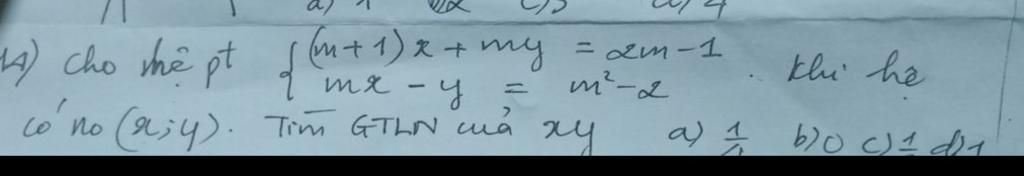 a) 1 c) 3 d) 4
14) Cho hệ pt { (m+1)x + my = 2m-1
mx - y = m²-2 . Khi hệ
có no (x;y). Tìm GTLN của xy a) 1/4 b) 0 c) 1 d) 1